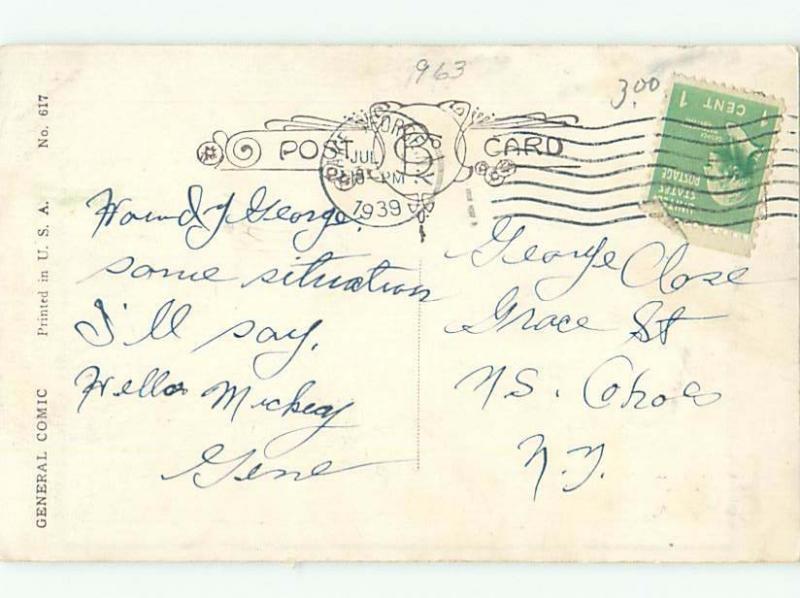 963
3.00
1 CENT 1
POST CARD
LAKE GEORGE N.Y.
JUL
PM
1939
Howdy George,
some situation
I'll say.
Hello Mickey
Gene
George Close
Grace St
N.S. Cohoes
N.Y.
GENERAL COMIC Printed in U. S. A. No. 617